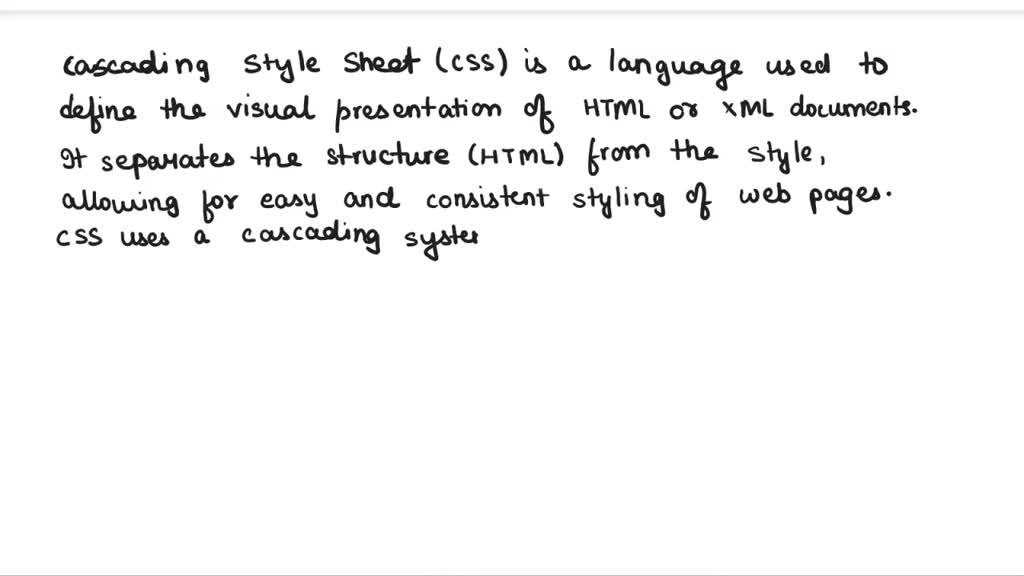 Cascading Style Sheet (CSS) is a language used to
define the visual presentation of HTML or XML documents.
It separates the structure (HTML) from the style,
allowing for easy and consistent styling of web pages.
CSS uses a cascading syste